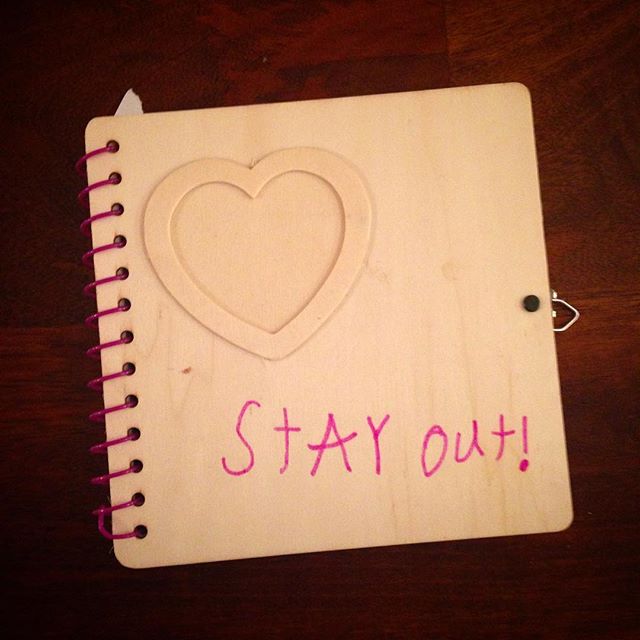 StAY out!